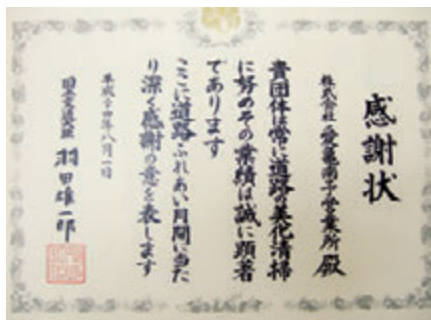 感謝状
株式会社 愛亀南予営業所 殿
貴団体は常に道路の美化清掃
に努めその業績は誠に顕著
であります
ここに道路ふれあい月間に当た
り深く感謝の意を表します
平成二十四年八月一日
国土交通大臣 羽田雄一郎